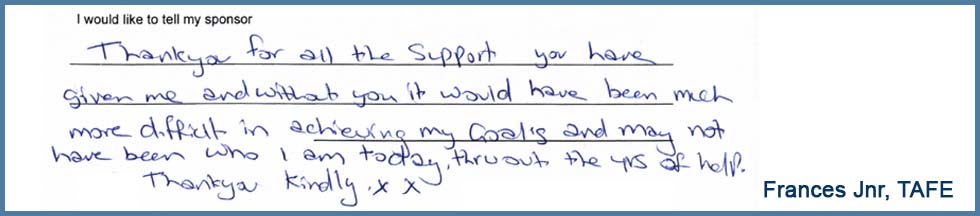 I would like to tell my sponsor
Thankyou for all the Support you have
given me and without you it would have been much
more difficult in achieving my Goal's and may not
have been who I am today, thruout the yrs of help.
Thankyou Kindly. x x
Frances Jnr, TAFE